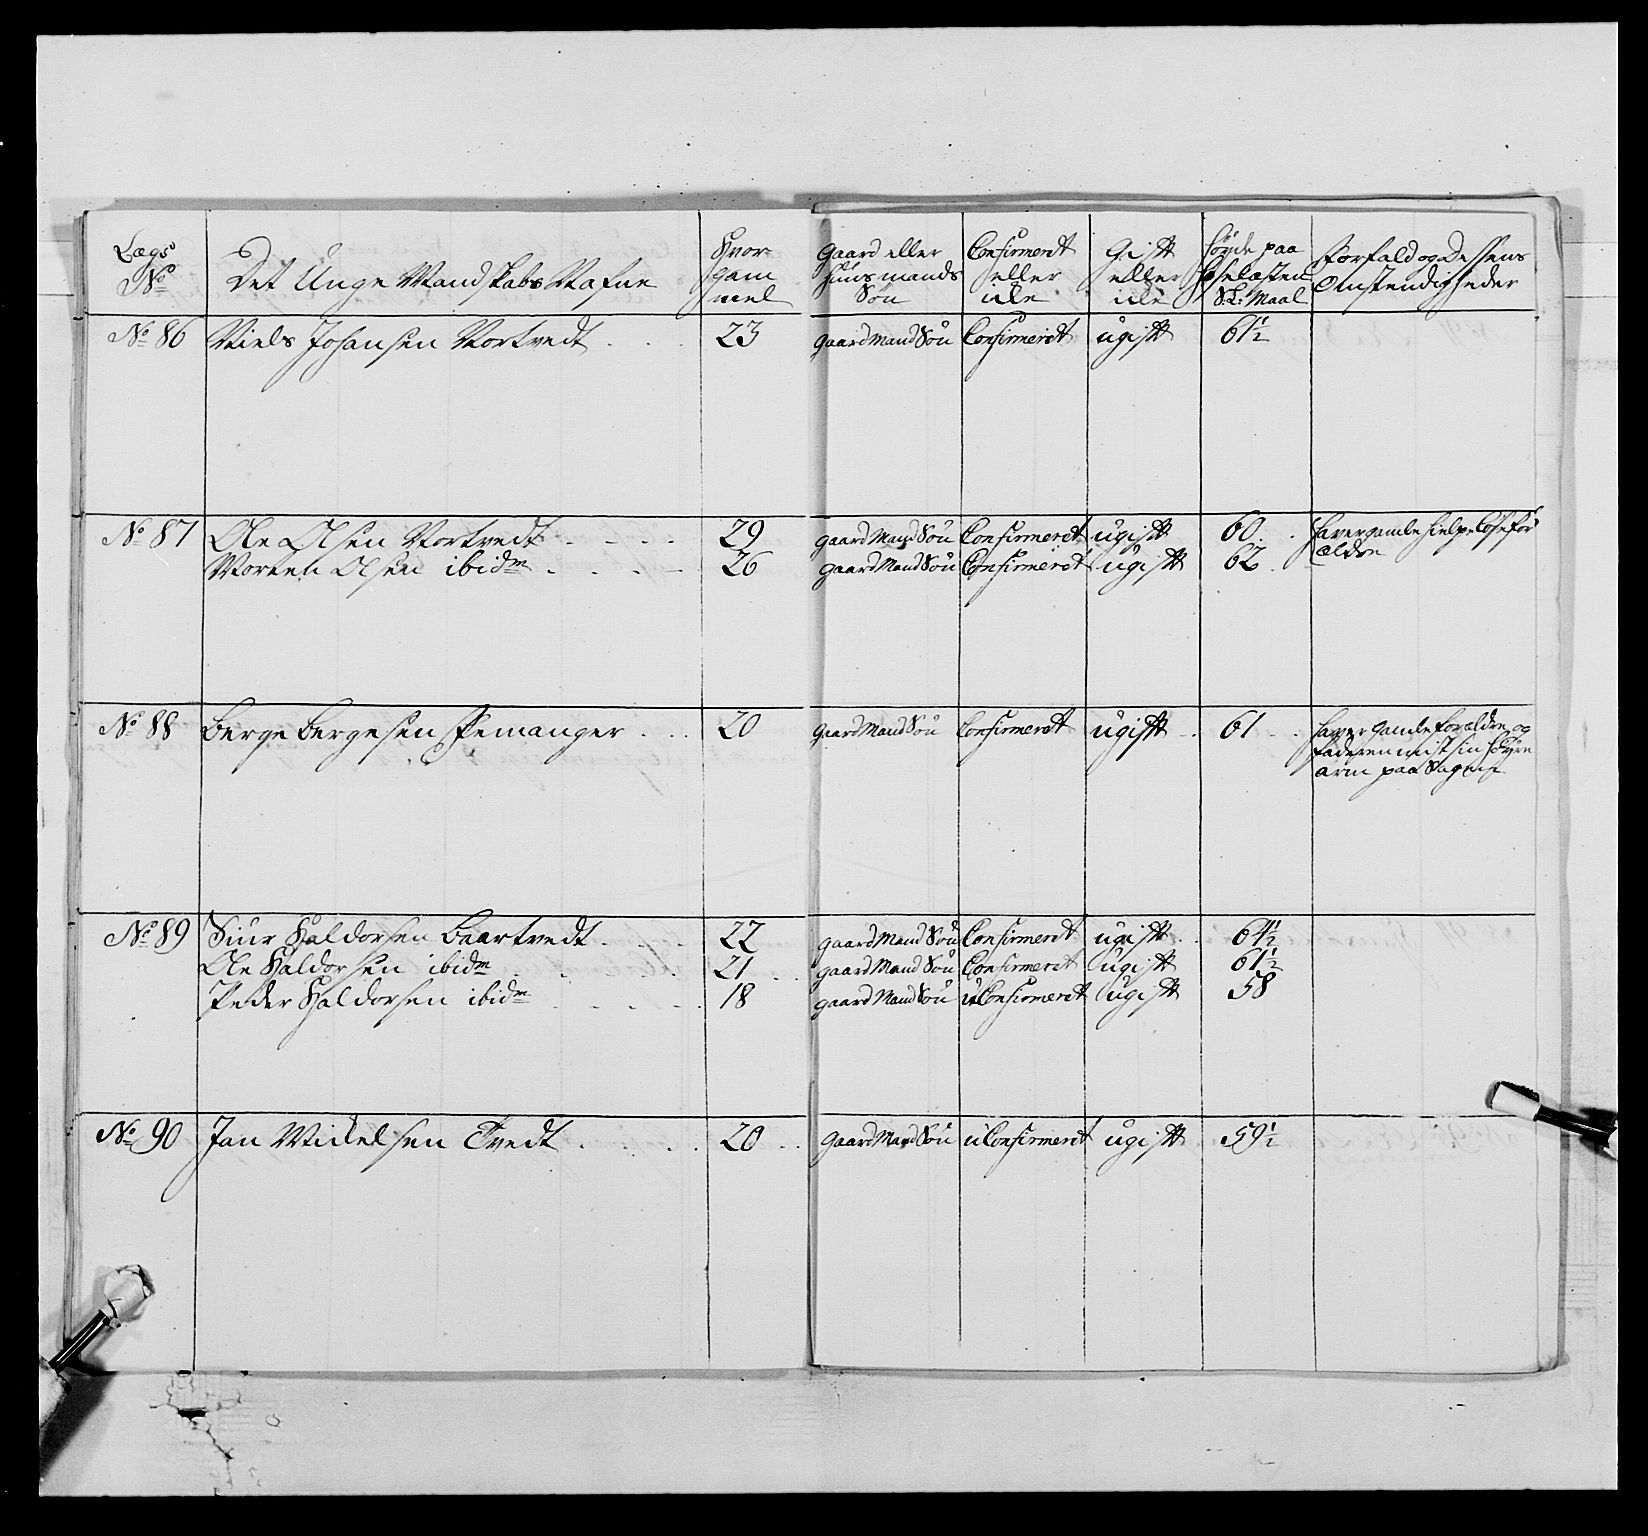 Lægs No | Det Unge Mandskabs Nafne | Hvor gam mel | Gaard eller Huusmands Søn | Confirmeret eller icke | Gift eller icke | Høyde paa Selæsten S:L: Maal | Forfald og Dessens Omstendigheder
No 86 Niels Johansen Nortvedt . . . 23 gaardMandSøn Confirmeret ugift 61½
No 87 Ole Olsen Nortvedt . . . . 29 gaardMandSøn Confirmeret ugift 60 . . haver gamle hielpeløse for
Morten Olsen ibidm . . . . 26 gaardMandSøn Confirmeret ugift 62 . ældre
No 88 Berge Bergesen Femanger . . . 20 gaardMandSøn Confirmeret ugift . . 61 . . haver gamle forældre og
faderen mist sin høyre
arm paa Sagen
No 89 Siur Haldorsen Baartvedt . . . . 22 gaardMandSøn Confirmeret ugift . . 64½
Ole Haldorsen ibidm . . . 21 . . gaardMandSøn Confirmeret ugift 61½
Peder Haldorsen ibidm . . . . 18 gaardMandSøn uConfirmeret ugift 58
No 90 Jan Mickelsen Tvedt . . . . 20 . . gaardMandSøn uConfirmeret ugift 59½